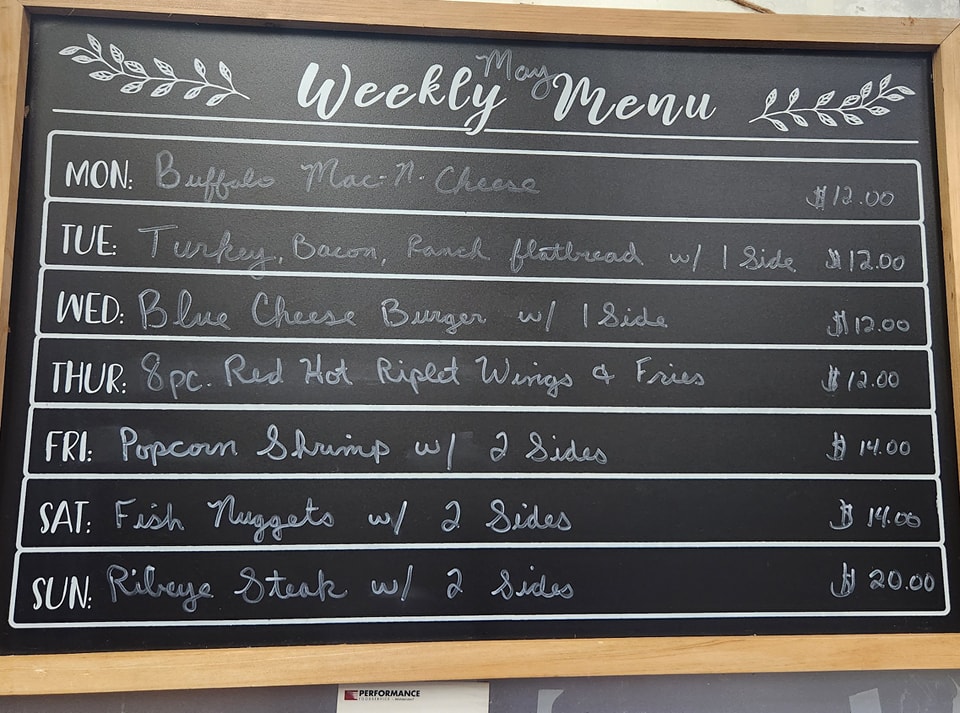 May
Weekly Menu
MON: Buffalo Mac-N-Cheese $12.00
TUE: Turkey, Bacon, Ranch flatbread w/ 1 Side $12.00
WED: Blue Cheese Burger w/ 1 Side $12.00
THUR: 8pc. Red Hot Riplet Wings & Fries $12.00
FRI: Popcorn Shrimp w/ 2 Sides $14.00
SAT: Fish Nuggets w/ 2 Sides $14.00
SUN: Ribeye Steak w/ 2 Sides $20.00
PERFORMANCE